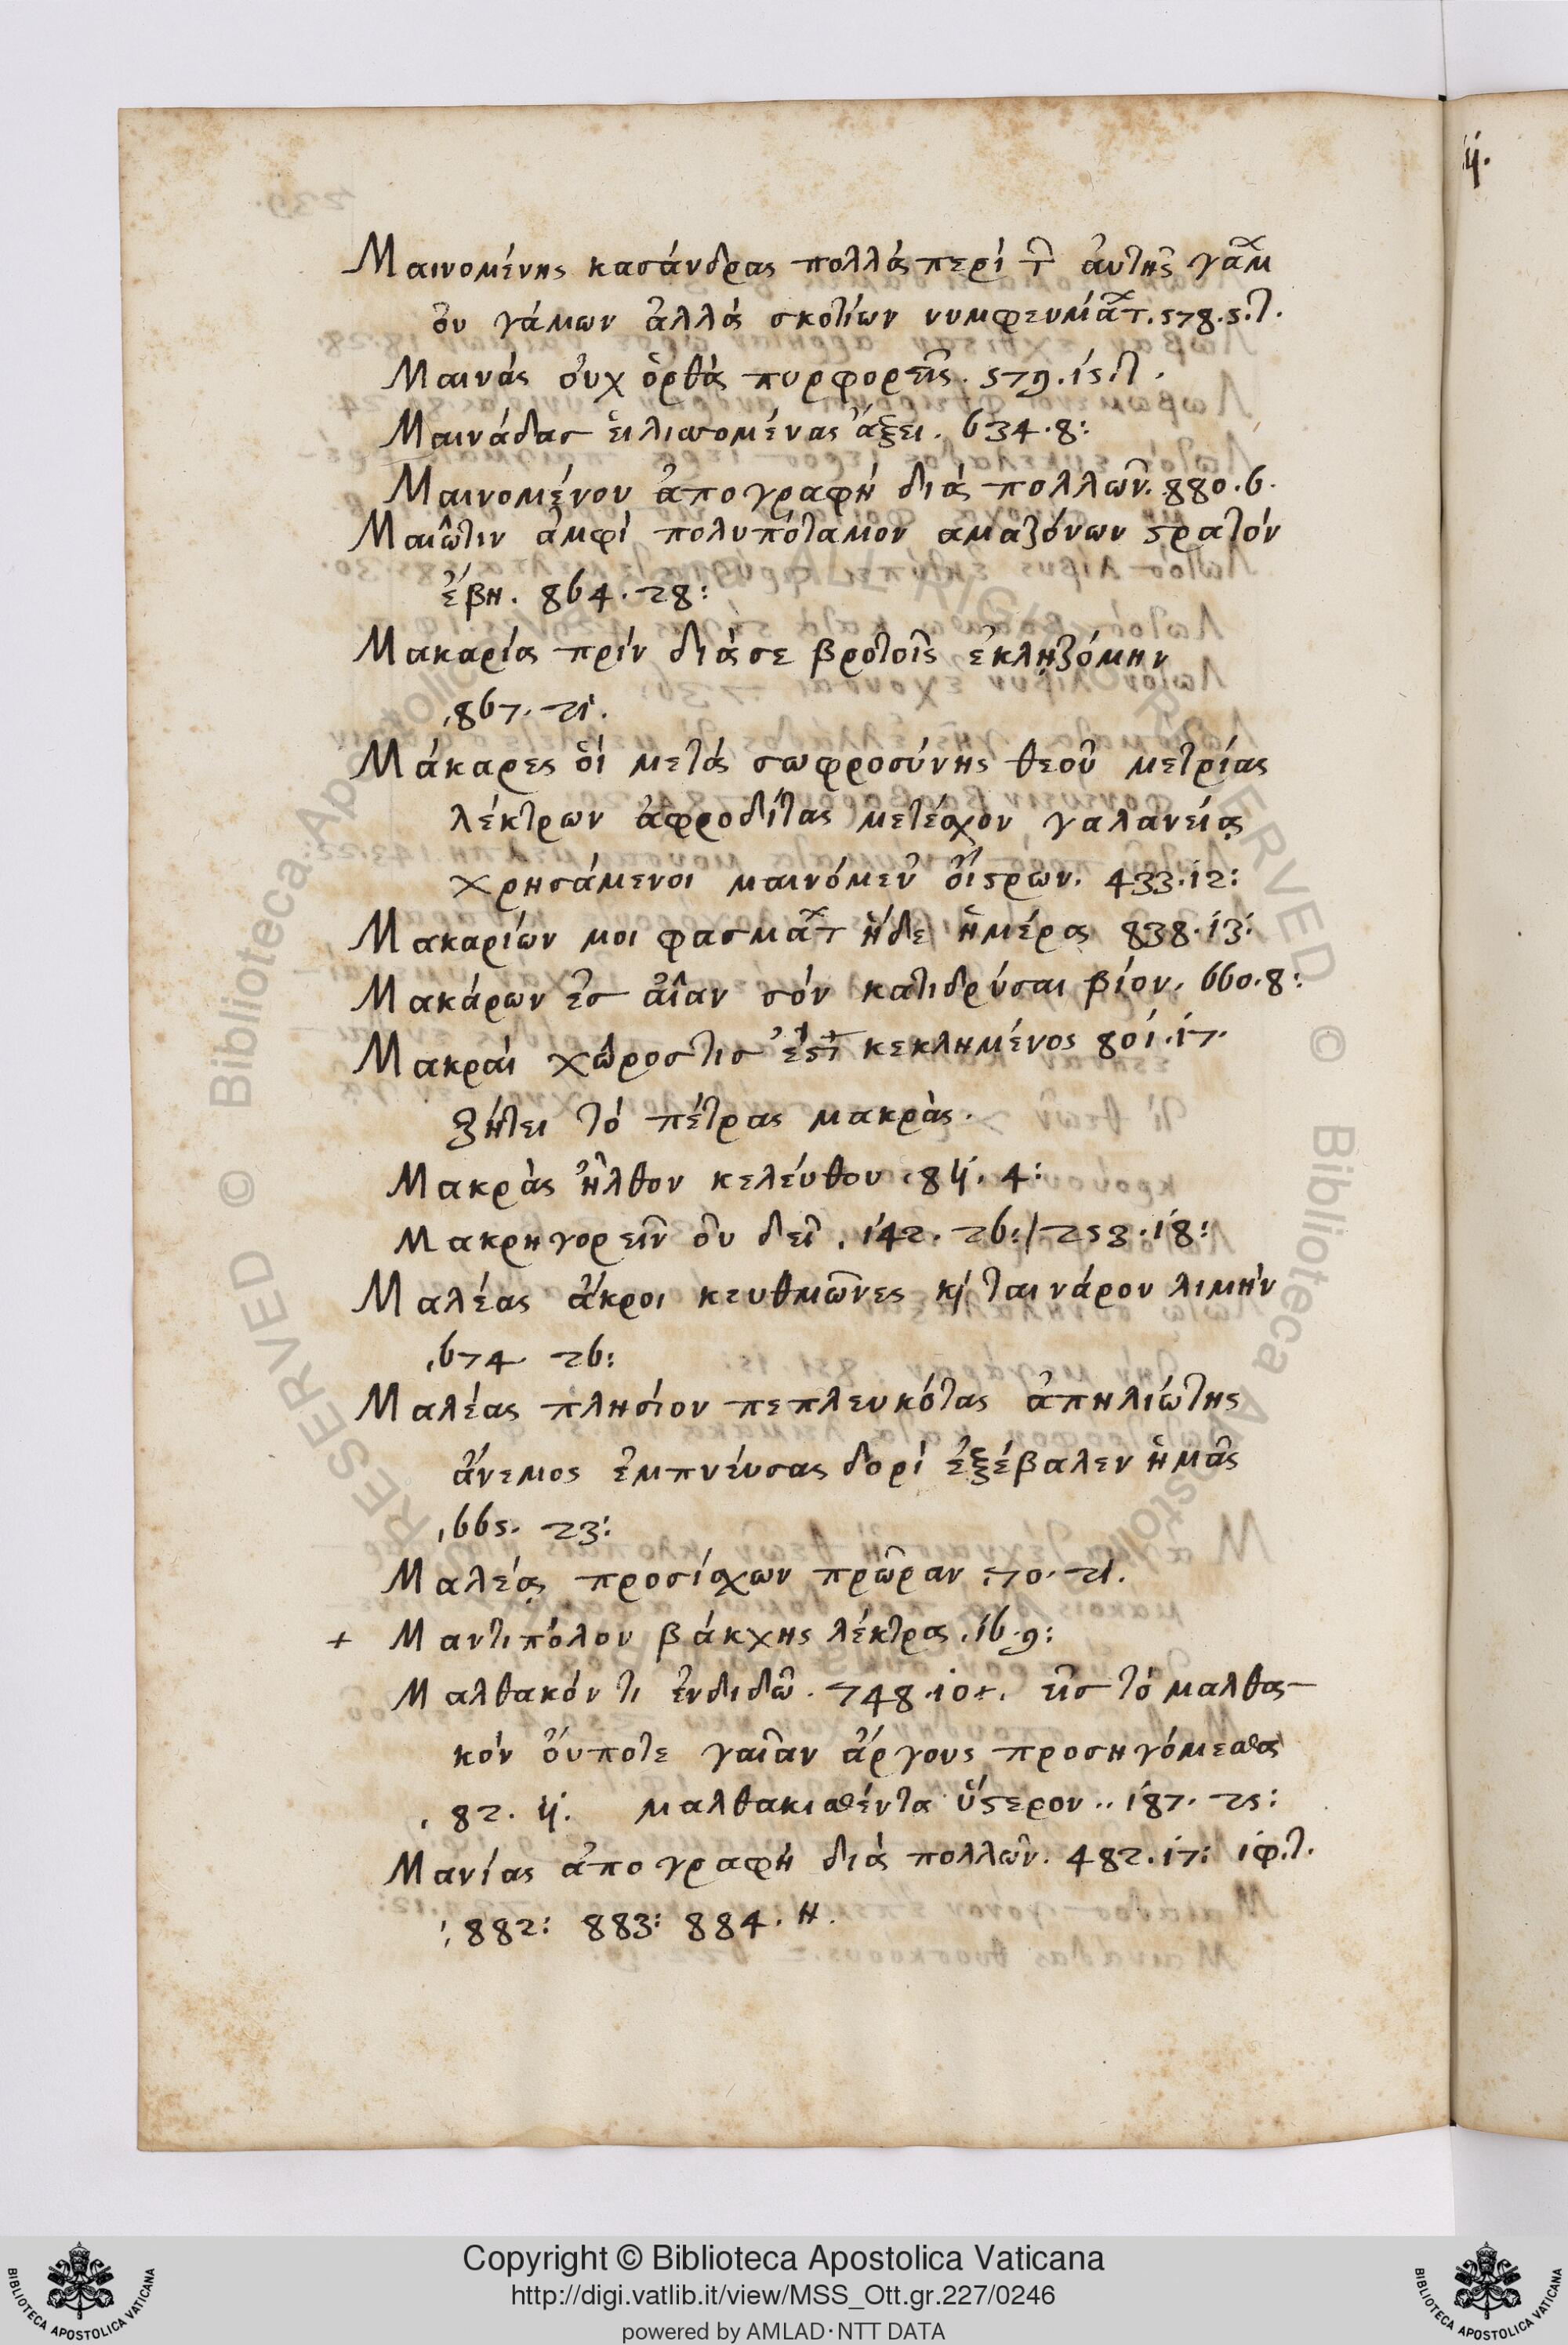 Μαινομένης κασάνδρας πολλά περί τ̑ αὐτῆς γάμ
οὐ γάμων ἀλλά σκοτίων νυμφευμάτ. 578.5.τ.
Μαινάς οὐχ ὀρθάς πυρφορεῖς. 579.15.τ.
Μαινάδασ εἱλισσομένας ἄξει. 634.8:
Μαινομένου ἀπογραφή διά πολλῶν. 880.6.
Μαιῶτιν ἀμφί πολυπόταμον αμαζόνων στρατόν
ἔβη. 864.28:
Μακαρία πρίν διά σε βροτοῖς ἐκληζόμην
,867.21.
Μάκαρες ὅι μετά σωφροσύνης θεοῦ μετρίας
λέκτρων ἀφροδίτας μετέσχον γαλανείᾳ
χρησάμενοι μαινόμεν οἴστρων. 433.12:
Μακαρίων μοι φασμάτ ἥδε ἡμέρα 838.13:
Μακάρων ἐσ αἶαν σόν κατιδρύσαι βίον. 660.8:
Μακραί χῶροστισ ἐστ κεκλημένος 801.17.
ζήτει τό πέτρας μακράς.
Μακράς ἦλθον κελεύθου. 811.4:
Μακρηγορεῖν οὐ δεῖ. 142.26:/253.18:
Μαλέας ἄκροι κευθμῶνες κ̀ ταινάρου λιμήν
,674 26:
Μαλέας πλησίον πεπλευκότας ἀπηλιώτης
ἄνεμος ἐμπνεύσας δορί ἐξέβαλεν ἡμᾶς
,665. 23:
Μαλέᾳ προσίσχων πρῶραν :70.21.
+ Μαντιπόλου βάκχης λέκτρα. 16.9:
Μαλθακόν τι ἐνδιδῶ. 748.10+. εἰσ τό μαλθα-
κόν οὔποτε γαῖαν ἄργους προσηγόμεσθα
,82.11. μαλθακισθέντα ὕστερον.. 187.25:
Μανίας ἀπογραφή διά πολλῶν. 482.17: ἰφ.τ.
;882: 883: 884. Η.
11.
Copyright © Biblioteca Apostolica Vaticana
http://digi.vatlib.it/view/MSS_Ott.gr.227/0246
powered by AMLAD·NTT DATA